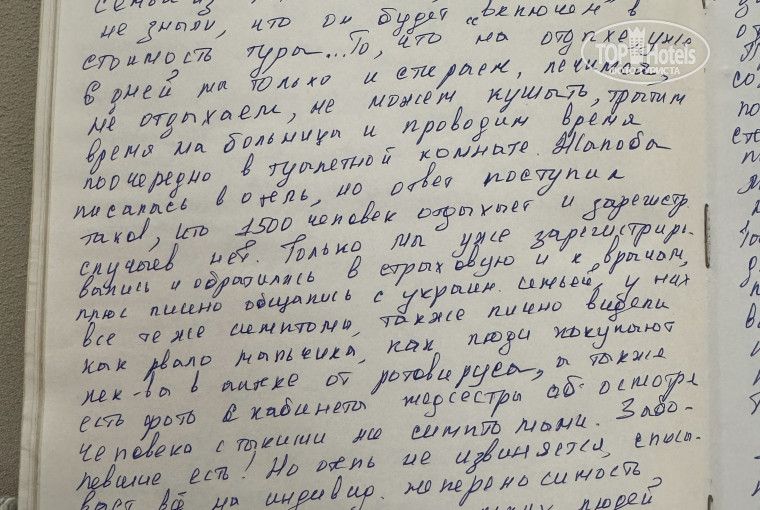 не знали, что он будет "включен" в
стоимость тура... То, что на отдыхе уже
6 дней мы только и стираем, лечимся,
не отдыхаем, не можем кушать, тратим
время на больницы и проводим время
поочередно в туалетной комнате. Жалоба
писалась в отель, но ответ поступил
таков, что 1500 человек отдыхает и зарегистр.
случаев нет. Только мы уже зарегистриро-
вались и обратились в страховую и к врачам,
плюс лично общались с украин. семьей, у них
все те же симптомы, также лично видели
как рвало мальчика, как люди покупают
лек-ва в аптеке от ротовируса, а также
есть фото с кабинета медсестры об осмотре
человека с такими же симптомами. Забо-
левшие есть! Но отель не извиняется, списы-
вает всё на индивид. непереносимость
людей
TOP Hotels